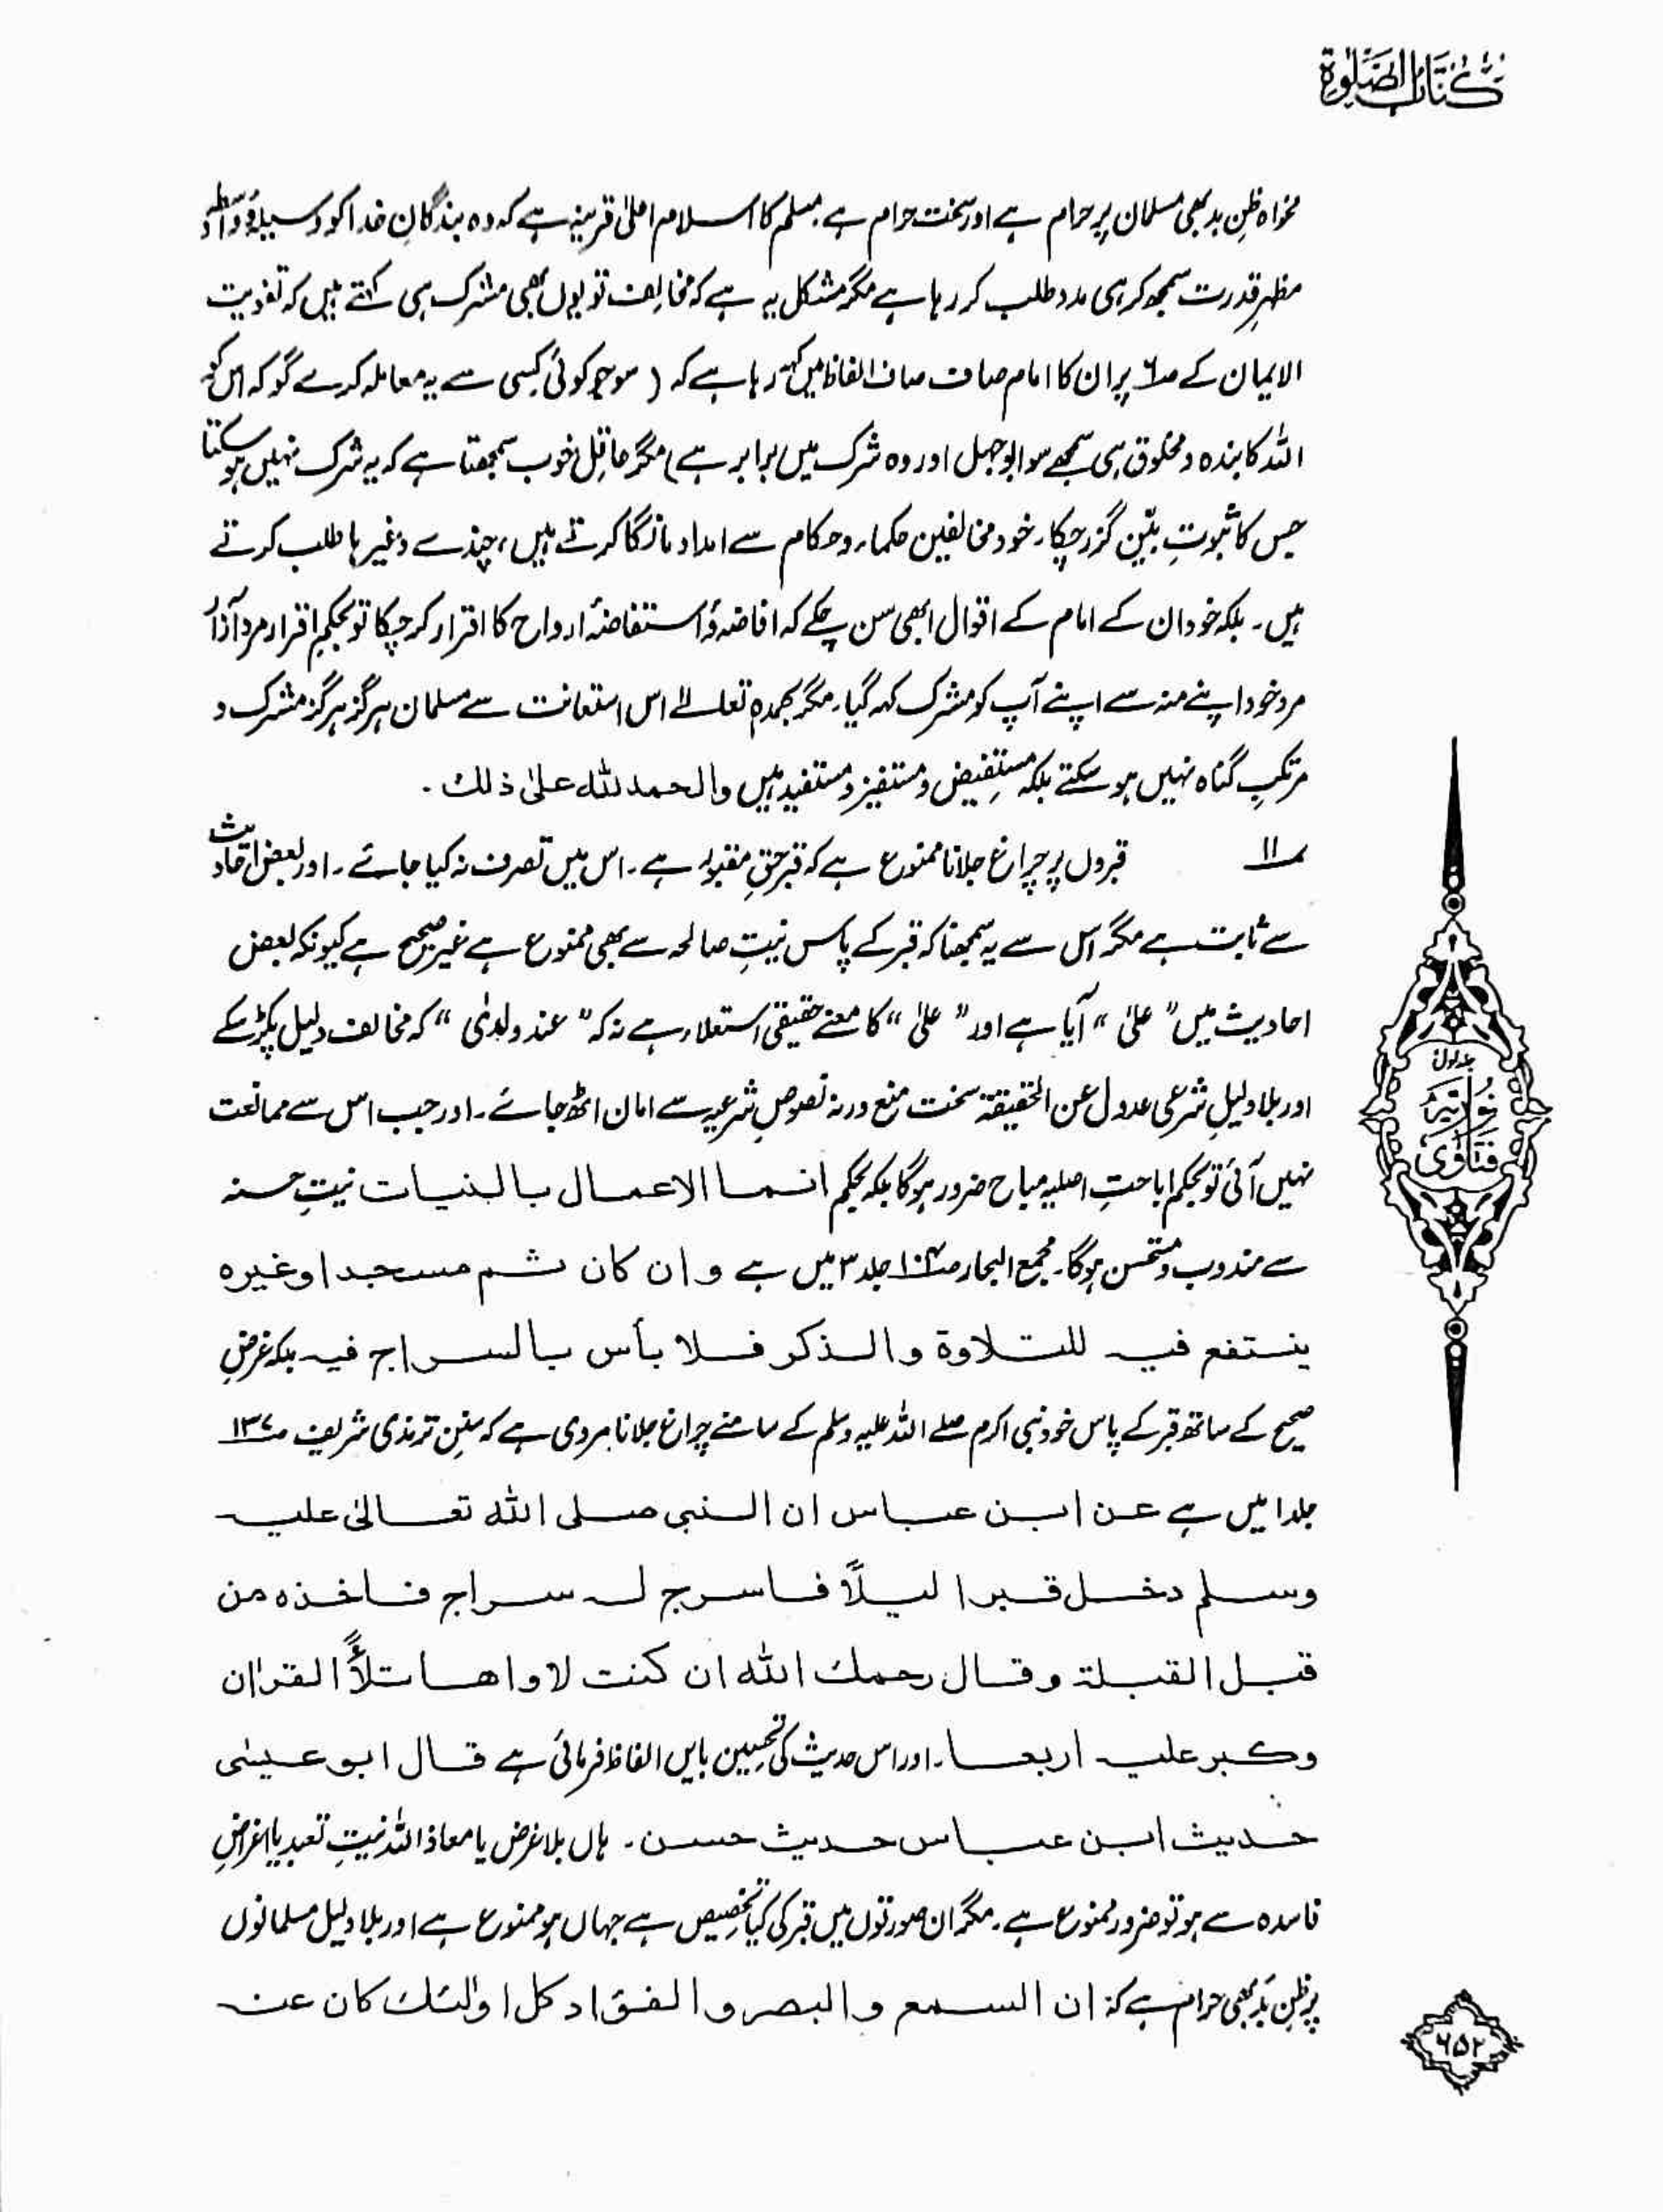 كتاب الصلوة
مخواہ ظنِ بد بھی مسلمان پر حرام ہے اور سخت حرام ہے۔ مسلم کا اسلام اعلیٰ قرینہ ہے کہ وہ بندگانِ خدا کو وسیلہ و واسطہ و
مظہرِ قدرت سمجھ کر ہی مدد طلب کر رہا ہے مگر مشکل یہ ہے کہ مخالف تو یوں بھی مشرک ہی کہتے ہیں کہ تفویت
الایمان کے ص٦ پر ان کا امام صاف صاف الفاظ میں کہہ رہا ہے کہ ( سو جو کوئی کسی سے یہ معاملہ کرے گو کہ اس کو
اللہ کا بندہ و مخلوق ہی سمجھے سو ابوجہل اور وہ شرک میں برابر ہے) مگر عاقل خوب سمجھتا ہے کہ یہ شرک نہیں ہو سکتا
جس کا ثبوتِ بیّن گزر چکا۔ خود مخالفین حکماء و حکام سے امداد مانگا کرتے ہیں، چندے وغیرہا طلب کرتے
ہیں۔ بلکہ خود ان کے امام کے اقوال ابھی سن چکے کہ افاضہ و استفاضۂ ارواح کا اقرار کر چکا تو بحکمِ اقرار مرد آزار
مرد خود اپنے منہ سے اپنے آپ کو مشرک کہہ گیا۔ مگر بحمدہٖ تعالےٰ اس استعانت سے مسلمان ہرگز ہرگز مشرک و
مرتکبِ گناہ نہیں ہو سکتے بلکہ مستفیض و مستفیز و مستفید ہیں والحمد للہ علیٰ ذلک۔
١١ قبروں پر چراغ جلانا ممنوع ہے کہ قبر حقِ مقبور ہے۔ اس میں تصرف نہ کیا جائے۔ اور بعض احادیث
سے ثابت ہے مگر اس سے یہ سمجھنا کہ قبر کے پاس نیتِ صالحہ سے بھی ممنوع ہے غیر صحیح ہے کیونکہ بعض
احادیث میں ”علیٰ“ آیا ہے اور ”علیٰ“ کا معنے حقیقی استعلاء ہے نہ کہ ”عند ولدیٰ“ کہ مخالف دلیل پکڑ سکے
اور بلا دلیلِ شرعی عدول عن الحقیقۃ سخت منع ورنہ نصوصِ شرعیہ سے امان اٹھ جائے۔ اور جب اس سے ممانعت
نہیں آئی تو بحکم اباحتِ اصلیہ مباح ضرور ہوگا بلکہ بحکم انما الاعمال بالنیات نیتِ حسنہ
سے مندوب و مستحسن ہوگا۔ مجمع البحار ص١٠٤ جلد ٣ میں ہے و ان کان ثم مسجد او غیرہ
ینتفع فیہ للتلاوۃ والذکر فلا بأس بالسراج فیہ بلکہ غرضِ
صحیح کے ساتھ قبر کے پاس خود نبی اکرم صلے اللہ علیہ وسلم کے سامنے چراغ جلانا مروی ہے کہ سنن ترمذی شریف ص١٣٧
جلد ١ میں ہے عن ابن عباس ان النبی صلی اللہ تعالیٰ علیہ
وسلم دخل قبرا لیلاً فاسرج لہ سراج فاخذہ من
قبل القبلۃ وقال رحمک اللہ ان کنت لاواھا تلاًّ القرٰان
وکبر علیہ اربعا۔ اور اس حدیث کی تحسین بایں الفاظ فرمائی ہے قال ابو عیسٰی
حدیث ابن عباس حدیث حسن۔ ہاں بلا غرض یا معاذ اللہ نیتِ تعبد یا اغراضِ
فاسدہ سے ہو تو ضرور ممنوع ہے۔ مگر ان صورتوں میں قبر کی کیا تخصیص ہے جہاں ہو ممنوع ہے اور بلا دلیل مسلمانوں
پر ظنِ بد بھی حرام ہے کہ ان السمع والبصر والفؤاد کل اولٰئک کان عنہ
جلد اول
فتاوی نوریہ
٦٥٢